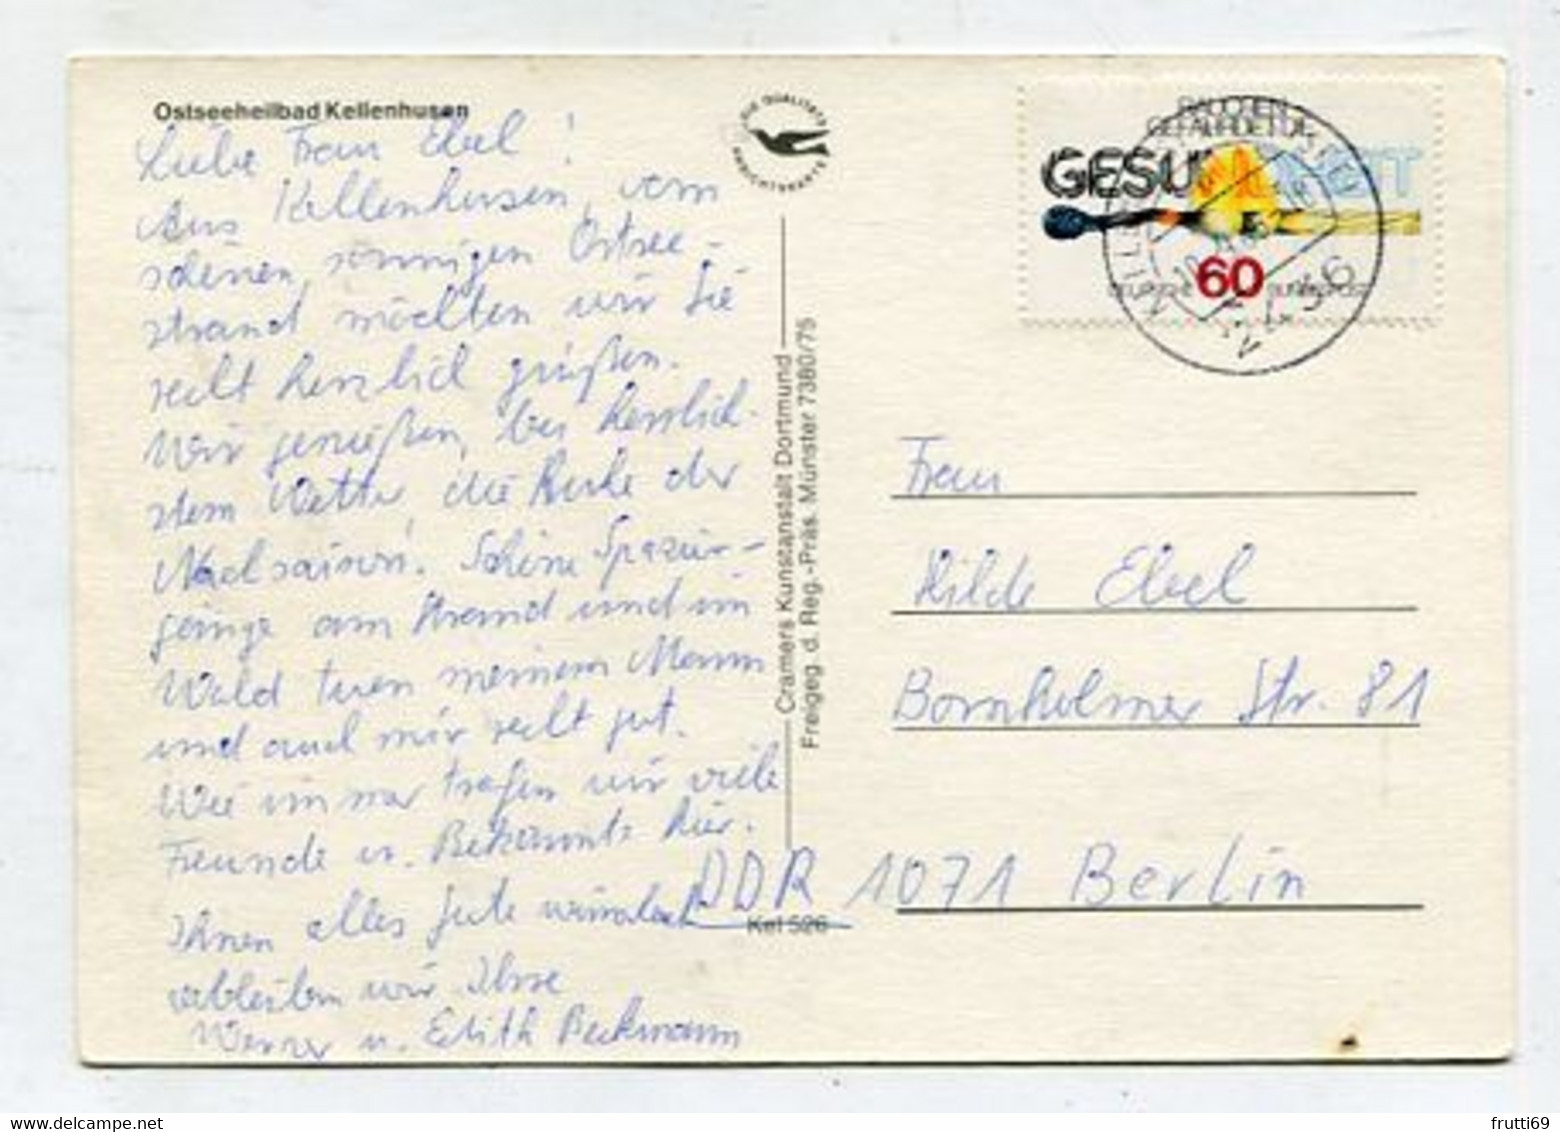 Ostseeheilbad Kellenhusen
Liebe Frau Ebel!
Aus Kellenhusen, vom
schönen, sonnigen Ostsee-
strand möchten wir Sie
recht herzlich grüßen.
Wir genießen, bei herrlich-
stem Wetter, die Ruhe der
Nachsaison. Schöne Spazier-
gänge am Strand und im
Wald tuen meinem Mann
und auch mir recht gut.
Wie immer trafen wir viele
Freunde u. Bekannte hier.
Ihnen alles Gute wünschend
verbleiben wir Ihre
Werner u. Edith Beckmann
DIE QUALITÄTS
ANSICHTSKARTE
Cramers Kunstanstalt Dortmund
Freigeg. d. Reg.-Präs. Münster 7380/75
Kel 526
RAUCHEN
GEFÄHRDET DIE
GESUNDHEIT
60
DEUTSCHE BUNDESPOST
Frau
Hilde Ebel
Bornholmer Str. 81
DDR 1071 Berlin
frutti69